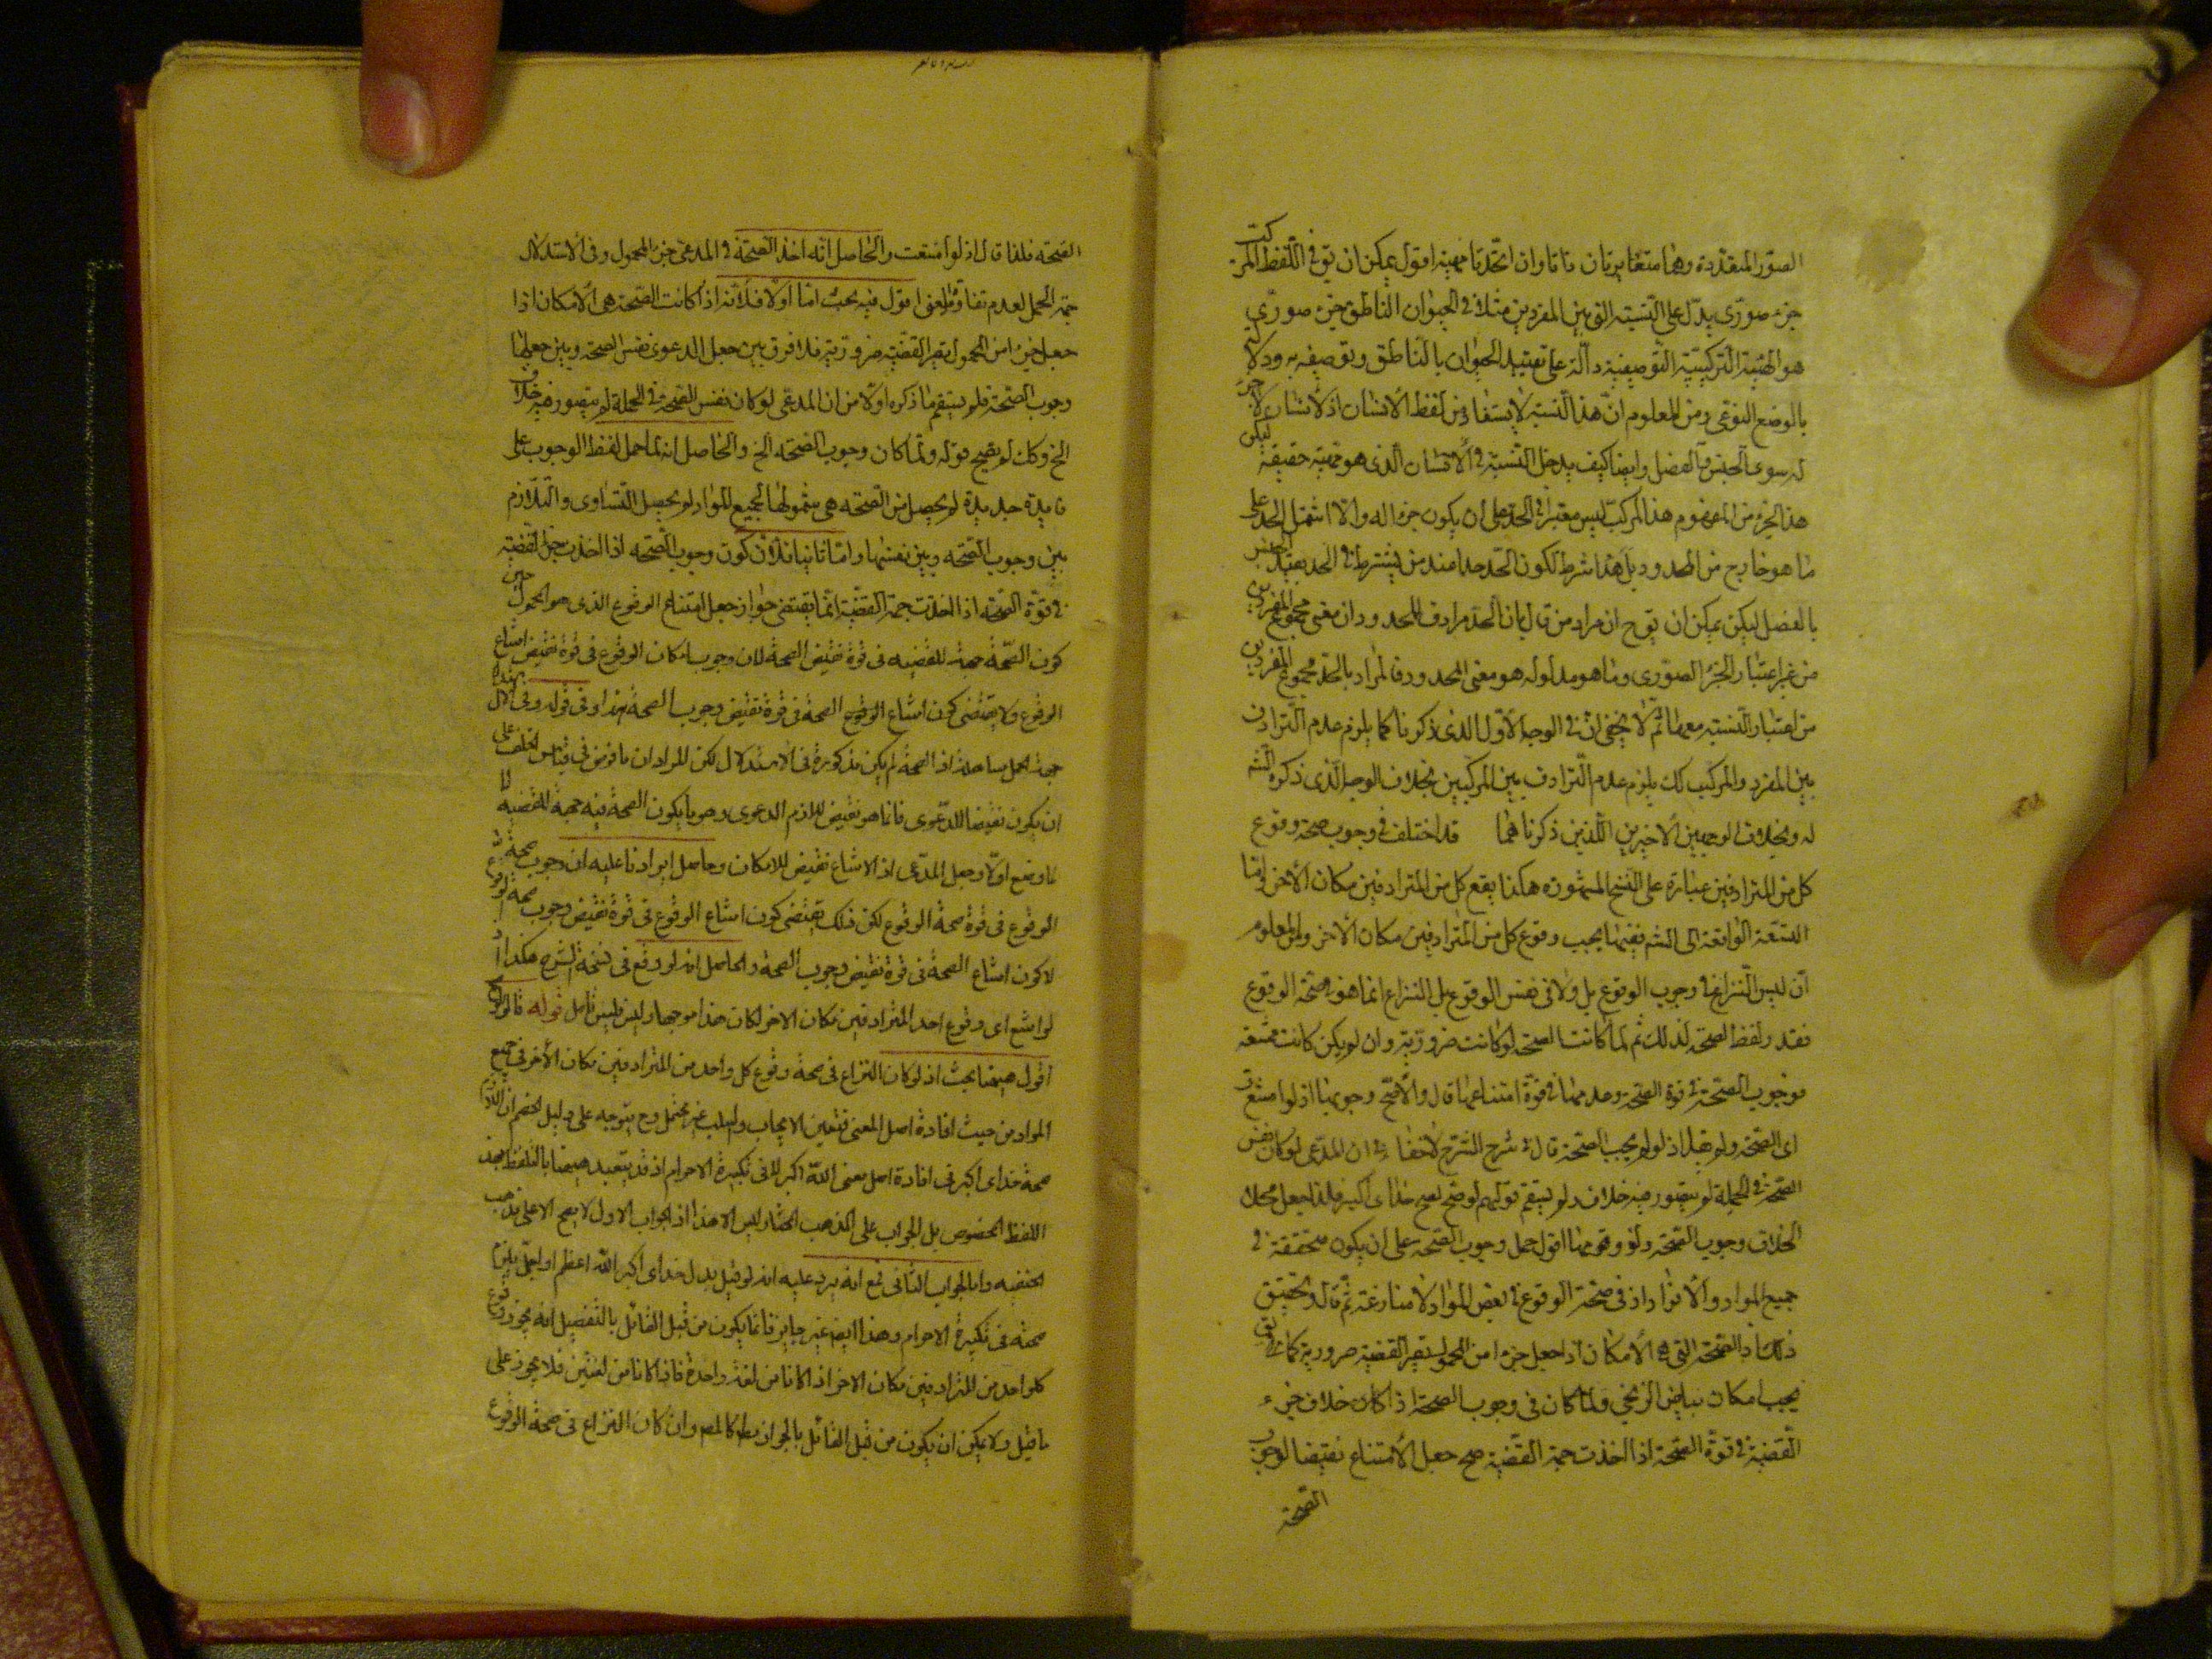 الصور المتعددة وهما متغايرتان ذاتا وان اتحدتا مهية اقول يمكن ان يق في اللفظ المركب
جزء صوري يدل على النسبة التي بين المفردين مثلا في الحيوان الناطق جزء صوري
هو الهيئة التركيبية التوصيفية دالة على تقييد الحيوان بالناطق وتوصيفه به ودلالته
بالوضع النوعي ومن المعلوم ان هذا النسبة لا يستفاد من لفظ الانسان اذ لانسان لا جزء
له سوى الجنس والفصل وايضا كيف يدخل النسبة في الانسان الذى هو مهية حقيقة ليكن
هذا الجزء من المفهوم هذا المركب ليس معتبرا في الحد على ان يكون جزء اله والا اشتمل الحد على
ما هو خارج من المحدود بل هذا شرط لكون الحد حدا عند من يشترط في الحد تقييد الجنس
بالفصل ليكن يمكن ان يق ح ان مراد من قال بان الحد مرادف للمحدود ان معنى مجموع المفردين
من غير اعتبار الجزء الصوري وما هو مدلوله هو معنى المحدود فالمراد بالحد مجموع المفردين
من اعتبار النسبة معهما ثم لا يخفى ان في الوجه الاول الذى ذكرنا كما يلزم عدم الترادف
بين المفرد والمركب كك يلزم عدم الترادف بين المركبين بخلاف الوجه الذى ذكره الش
له وبخلاف الوجهين الاخيرين اللذين ذكرناهما قد اختلف في وجوب صحة وقوع
كل من المترادفين عبارة على النسخ المشهورة هكذا يقع كل من المترادفين مكان الآخر واما
النسخة الواقعة الى الش ففيها يجب وقوع كل من المترادفين مكان الآخر والمعلوم
ان ليس النزاع في وجوب الوقوع بل ولا في نفس الوقوع بل النزاع انما هو في صحة الوقوع
فقد ولفظ الصحة لذلك ثم لما كانت الصحة لو كانت ضرورية وان لم يكن كانت ممتنعة
فوجوب الصحة في قوة الصحة وعدمها في قوة امتناعها قال والاصح وجوبها اذ لو امتنعت
اى الصحة ولم يقل اذ لو لم يجب الصحة قال في شرح الشرح لا خفاء في ان المدعى لو كان نفس
الصحة في الجملة لم يتصور فيه خلاف ولم يستقم قولهم لو صح لصح خداى اكبر فلذا جعل محل
الخلاف وجوب الصحة ولو وقوعها اقول حمل وجوب الصحة على ان يكون متحققة في
جميع المواد والافراد اذ في صحة الوقوع في بعض المواد لا منازعة ثم قال وتحقيق
ذلك ان الصحة التي هي الامكان اذا جعل جزءا من المحمول يصير القضية ضرورية كما في ق
يجب امكان بياض الزنجي ولما كان في وجوب الصحة اذا كان خلاف جزء
القضية في قوة الصحة اذا اخذت جهة القضية صح جعل الامتناع نقيضا لوجوب
الصحة
الصحة فلذا قال اذ لو امتنعت والحاصل انه اخذ الصحة في المدعى جزء المحمول وفى الاستدلال
جهة الحمل لعدم تفاوت المعنى اقول فيه بحث اما اولا فلانه اذا كانت الصحة هي الامكان اذا
جعل جزءا من المحمول يصير القضية ضرورية فلا فرق بين جعل الدعوى نفس الصحة وبين جعلها
وجوب الصحة فلم يستقم ما ذكره اولا من ان المدعى لو كان نفس الصحة في الجملة لم يتصور فيه خلاف
الخ وكك لم يصح قوله ولما كان وجوب الصحة الخ والحاصل انه لما حمل لفظ الوجوب على
فايدة جديدة لم يحصل من الصحة هي شمولها لجميع المواد لم يحصل التساوى والتلازم
بين وجوب الصحة وبين نفسها واما ثانيا فلان كون وجوب الصحة اذا اخذت جزء القضية
في قوة الصحة اذا اخذت جهة القضية انما يقتضى جواز جعل امتناع الوقوع الذى هو المحمول حين
كون الصحة جهة للقضية في قوة نقيض الصحة لان وجوب امكان الوقوع في قوة نقيض امتناع
الوقوع ولا يقتضى كون امتناع الوقوع الصحة في قوة نقيض وجوب الصحة بهذا وفى قوله وفى الاستدلال
جهة الحمل مساهلة اذ الصحة لم يكن مذكورة في الاستدلال لكن المراد ان ما فرض في قياس الخلف على
ان يكون نقيضا للدعوى فانما هو نقيض للازم الدعوى وهو ما يكون الصحة فيه جهة للقضية لا
ما وضع اولا وجعل المدعى اذ الامتناع نقيض للامكان وحاصل ايرادنا عليه ان وجوب صحة
الوقوع في قوة صحة الوقوع لكن ذلك يقتضى كون امتناع الوقوع في قوة نقيض وجوب صحة الوقوع
لا كون امتناع الصحة في قوة نقيض وجوب الصحة والحاصل انه لو وقع في نسخة الشرح هكذا اذ
لو امتنع اى وقوع احد المترادفين مكان الاخر لكان هذا موجها وليس فليس تأمل قوله قالوا لو صح
اقول ههنا بحث اذ لو كان النزاع في صحة وقوع كل واحد من المترادفين مكان الآخر في جميع
المواد من حيث افادة اصل المعنى فتعين الايجاب والسلب غير محتمل وح يتوجه على دليل الخصم ان اللازم
صحة خداى اكبر في افادة اصل معنى الله اكبر لا في تكبيرة الاحرام اذ قد يتعبد ههنا بالتلفظ بهذا
اللفظ المخصوص بل الجواب على المذهب المختار ليس الا هذا اذ الجواب الاول لا يصح الا على مذهب
الحنفية واما الجواب الثانى فمع انه يرد عليه انه لو قيل بدل خداى اكبر الله اعظم او اجل يلزم
صحته في تكبيرة الاحرام وهذا ايضا غير جايز فانما يكون من قبل القائل بالتفصيل انه يجوز وقوع
كل واحد من المترادفين مكان الاخر اذا كانا من لغة واحدة فاذا كانا من لغتين فلا يجوز على
ما قيل ولا يمكن ان يكون من قبل القائل بالجواز مط كالمص وان كان النزاع في صحة الوقوع